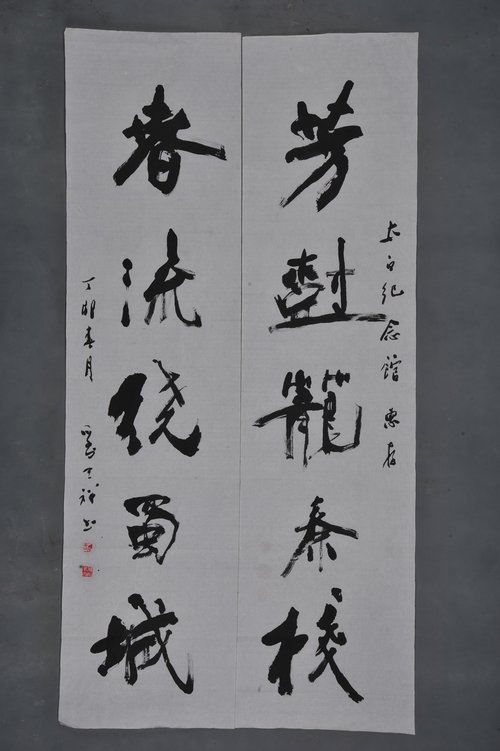 太白纪念馆 惠存
芳樹籠秦棧
春流绕蜀城
丁卯春月